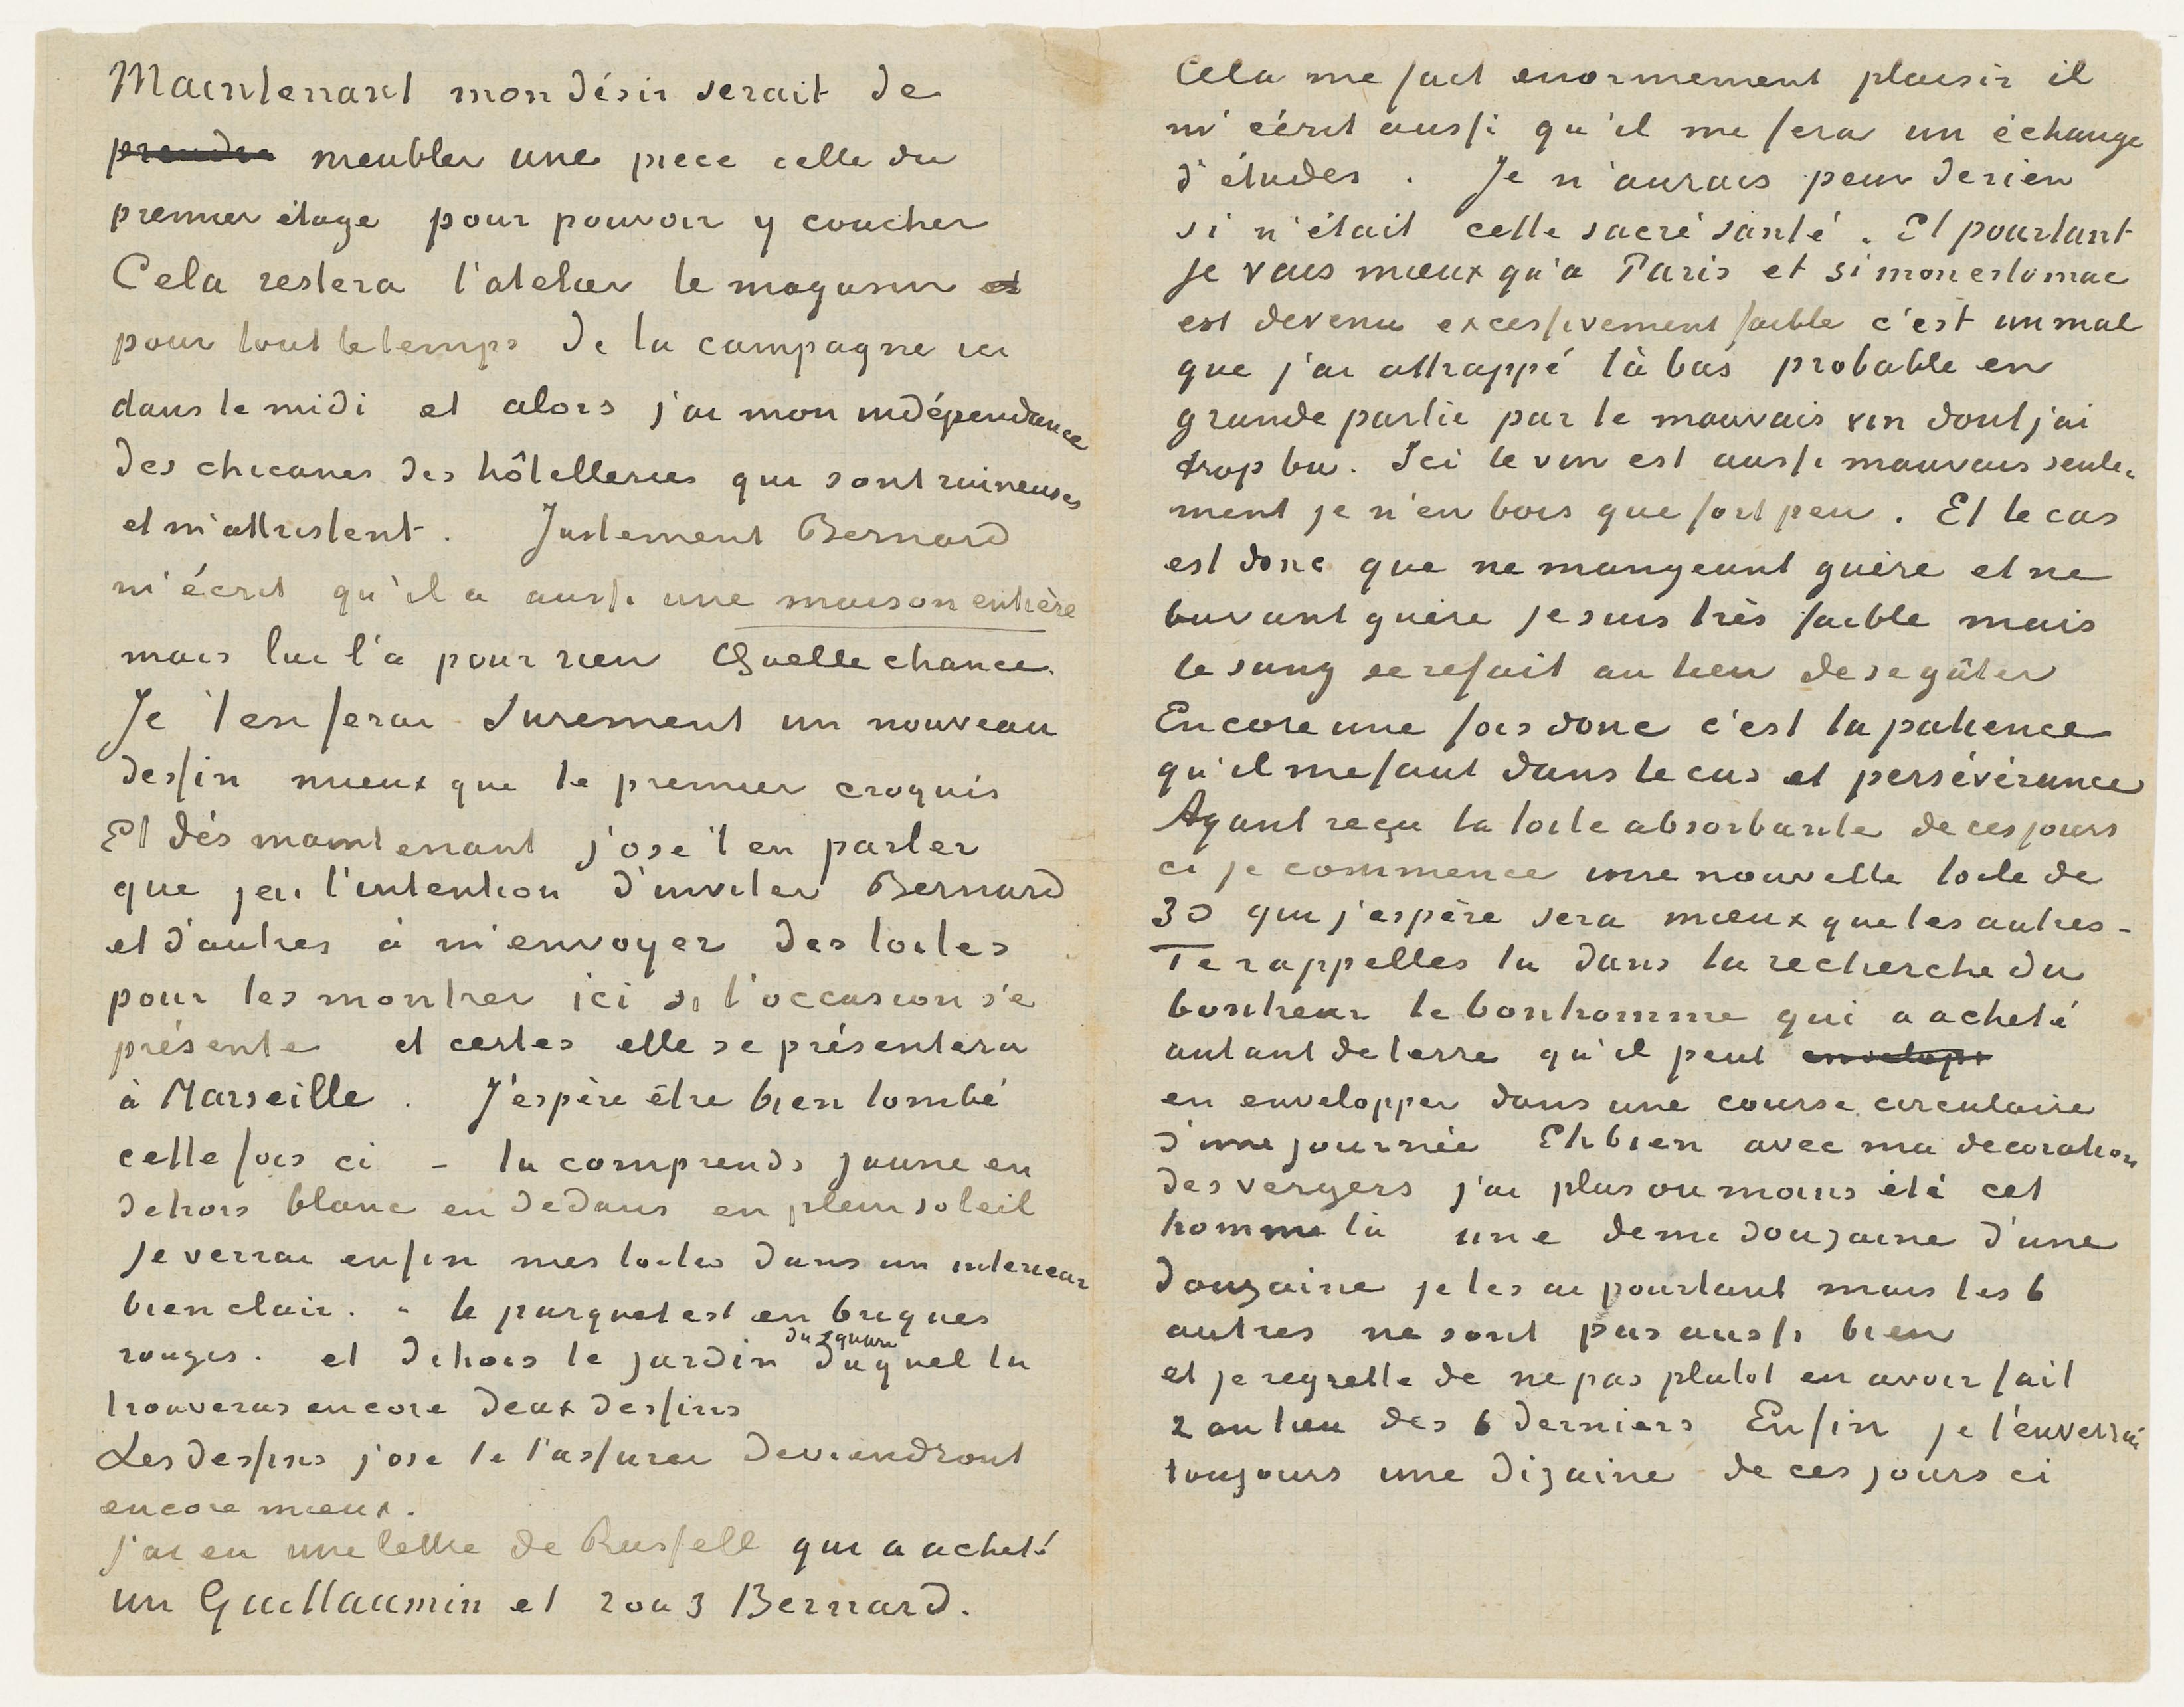 Maintenant mon désir serait de
prendre meubler une piece celle du
premier étage pour pouvoir y coucher
Cela restera l'atelier le magasin et
pour tout le temps de la campagne ici
dans le midi et alors j'ai mon indépendance
des chicanes des hôtelleries qui sont ruineuses
et m'attristent. Justement Bernard
m'écrit qu'il a aussi une maison entière
mais lui l'a pour rien Quelle chance.
Je t'en ferai surement un nouveau
dessin mieux que le premier croquis
Et dés maintenant j'ose t'en parler
que j'ai l'intention d'inviter Bernard
et d'autres à m'envoyer des toiles
pour les montrer ici si l'occasion s'e
présente et certes elle se présentera
à Marseille. J'espère être bien tombé
cette fois ci – tu comprends jaune en
dehors blanc en dedans en plein soleil
je verrai enfin mes toiles dans un interieur
bien clair. – le parquet est en briques
rouges. et dehors le jardin du square duquel tu
trouveras encore deux dessins
Les dessins j'ose te l'assurer deviendront
encore mieux.
j'ai eu une lettre de Russell qui a acheté
un Guillaumin et 2 ou 3 Bernard.
Cela me fait enormement plaisir il
m'éérit aussi qu'il me fera un échange
d'études. Je n'aurais peur de rien
si n'était cette sacré santé. Et pourtant
je vais mieux qu'a Paris et si mon estomac
est devenu excessivement faible c'est un mal
que j'ai attrappé là bas probable en
grande partie par le mauvais vin dont j'ai
trop bu. Ici le vin est aussi mauvais seule-
ment je n'en bois que fort peu. Et le cas
est donc que ne mangeant guère et ne
buvant guère je suis très faible mais
le sang se refait au lieu de se gâter
Encore une fois donc c'est la patience
qu'il me faut dans le cas et persévérance
Ayant reçu la toile absorbante de ces jours
ci je commence une nouvelle toile de
30 qui j'espère sera mieux que les autres –
Te rappelles tu dans la recherche du
bonheur le bonhomme qui a acheté
autant de terre qu'il peut envelopr
en envelopper dans une course circulaire
d'une journée Eh bien avec ma decoration
des vergers j'ai plus ou moins été cet
homme là une demi douzaine d'une
douzaine je les ai pourtant mais les 6
autres ne sont pas aussi bien
et je regrette de ne pas plutot en avoir fait
2 au lieu des 6 derniers Enfin je t'enverrai
toujours une dizaine de ces jours ci